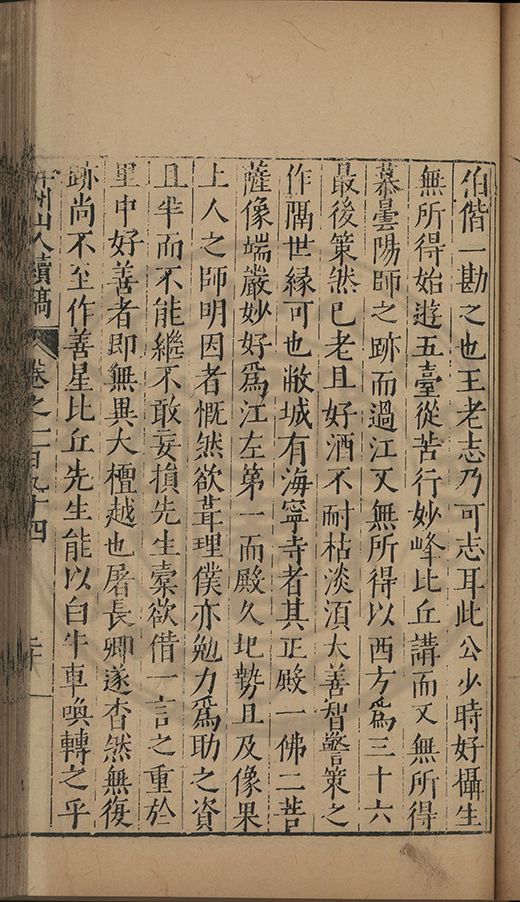 伯偕一勘之也王老志乃可志耳此公少時好攝生
無所得始遊五臺從苦行妙峰比丘講而又無所得
慕曇陽師之跡而過江又無所得以西方爲三十六
最後策然已老且好酒不耐枯淡湏大善智警策之
作隔世縁可也敝城有海寧寺者其正殿一佛二菩
薩像端嚴妙好爲江左第一而殿久圯勢且及像果
上人之師明因者慨然欲葺理僕亦勉力爲助之資
且半而不能繼不敢妄損先生槖欲借一言之重於
里中好善者即無異大檀越也屠長卿遂杳然無復
跡尚不至作善星比丘先生能以白牛車喚轉之乎
山人續稿 卷之一百九十四